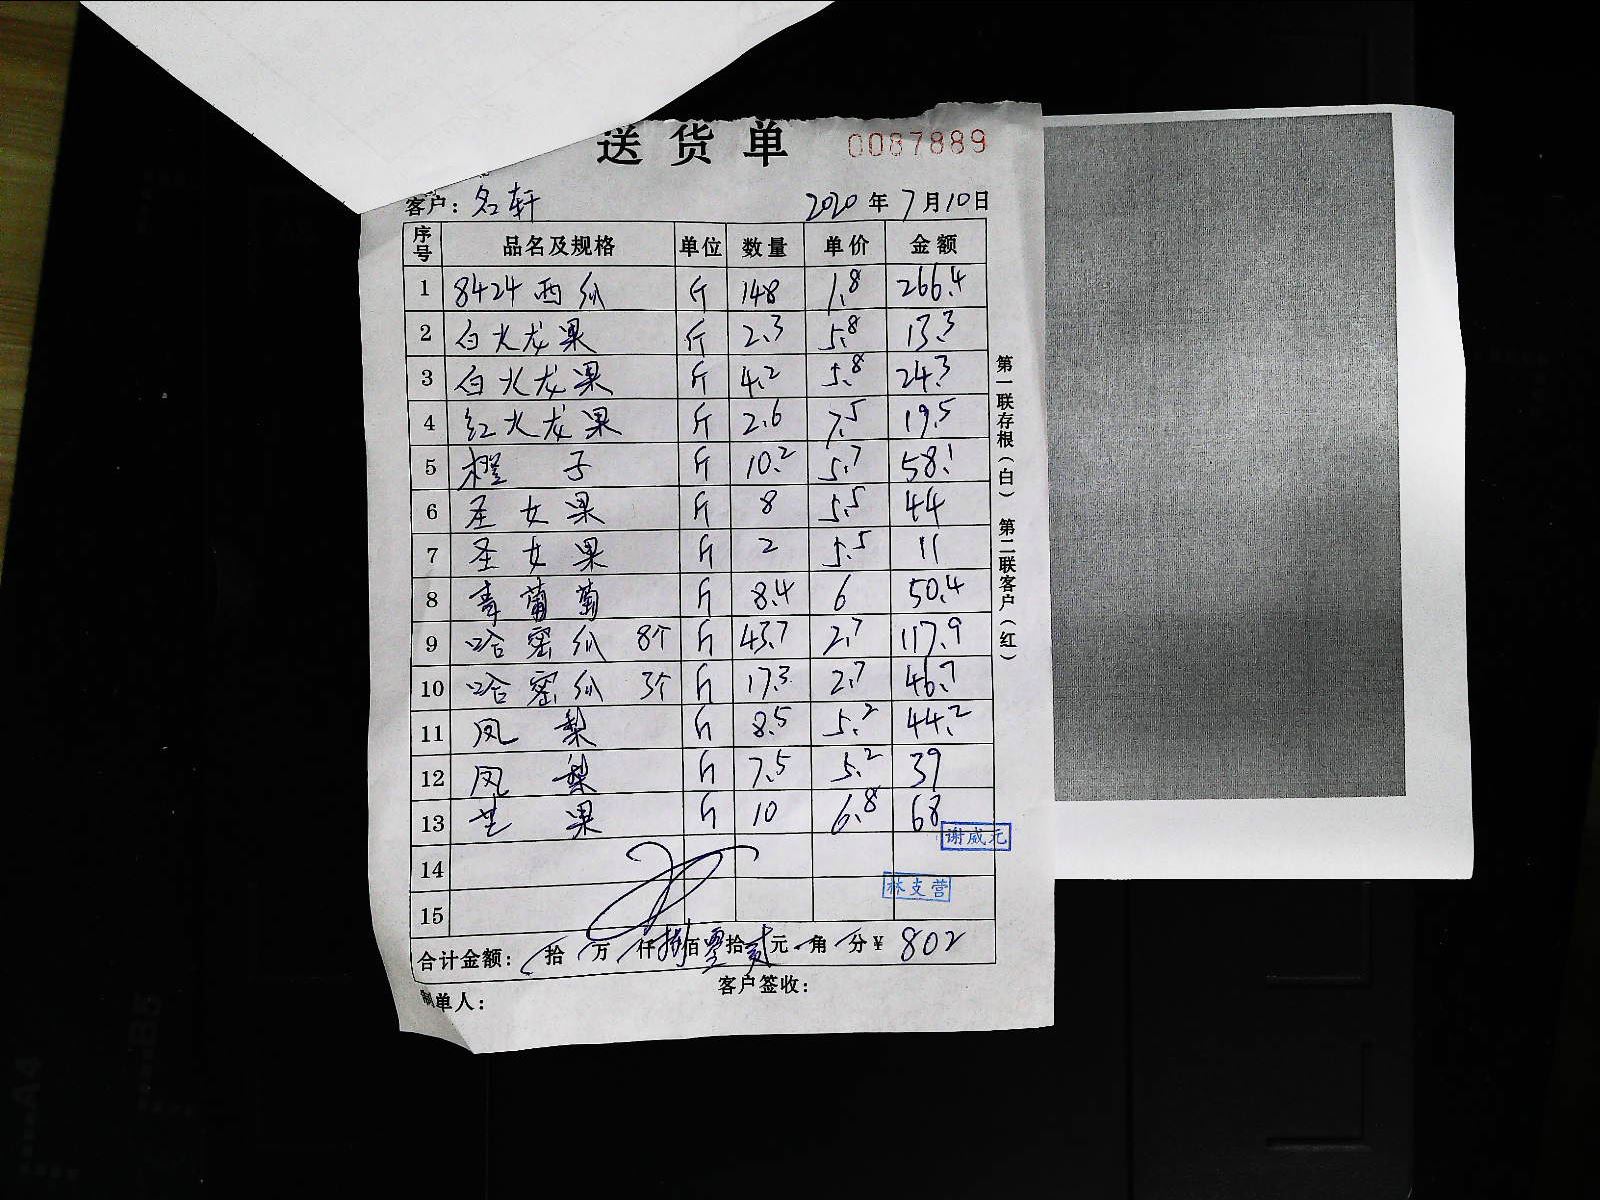 送货单 0087889
客户：名轩 2020年7月10日
序号 品名及规格 单位 数量 单价 金额
1 8424西瓜 斤 148 1.8 266.4
2 白火龙果 斤 2.3 5.8 13.3
3 白火龙果 斤 4.2 5.8 24.3
4 红火龙果 斤 2.6 7.5 19.5
5 橙子 斤 10.2 5.7 58.1
6 圣女果 斤 8 5.5 44
7 圣女果 斤 2 5.5 11
8 青葡萄 斤 8.4 6 50.4
9 哈密瓜 8个 斤 43.7 2.7 117.9
10 哈密瓜 3个 斤 17.3 2.7 46.7
11 凤梨 斤 8.5 5.2 44.2
12 凤梨 斤 7.5 5.2 39
13 芒果 斤 10 6.8 68
谢威元
14
林支营
15
合计金额： 拾 万 仟捌佰零拾贰元 角 分¥ 802
制单人： 客户签收：
第一联存根（白） 第二联客户（红）
A4
B5